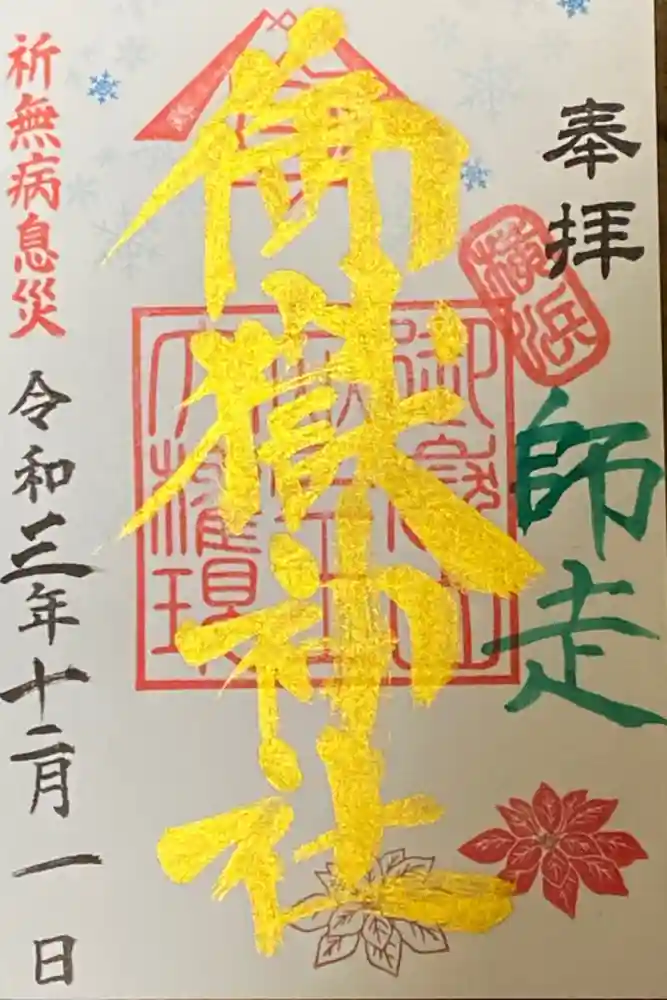 奉拝
横浜
師走
御嶽神社
令和三年十二月一日
祈無病息災